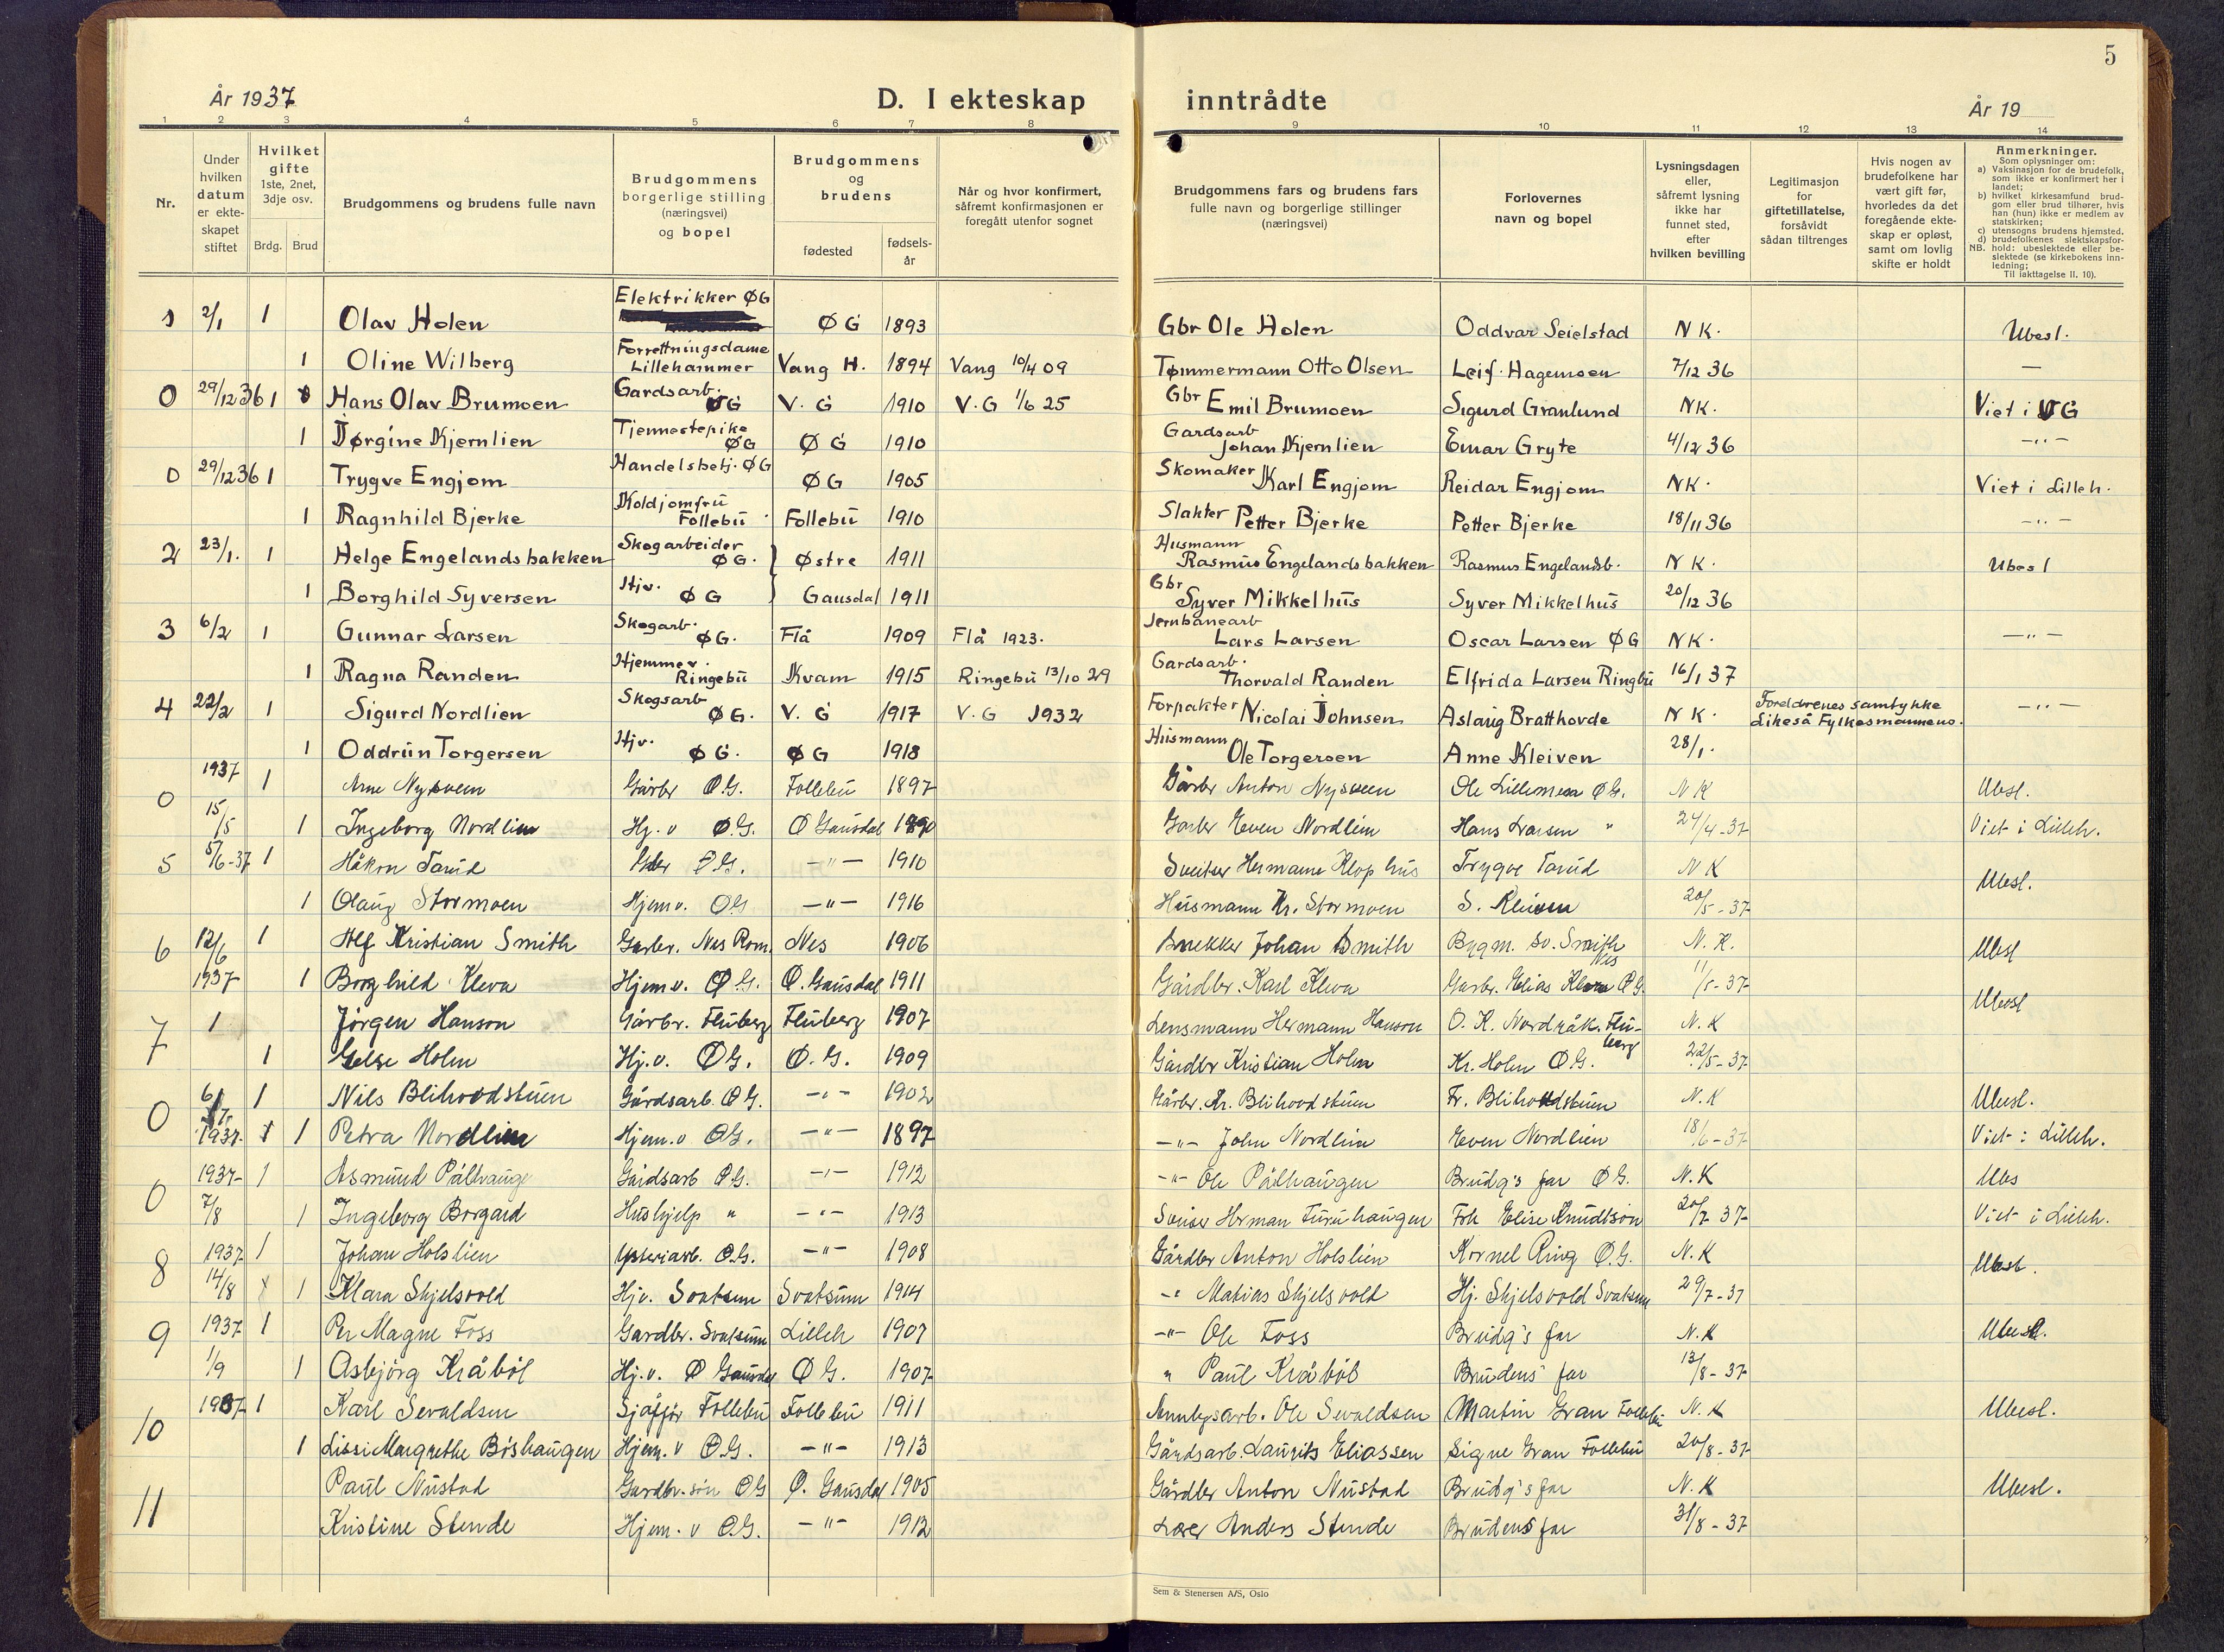 5
År 1937 D. I ekteskap inntrådte År 19
1 2 3 4 5 6 7 8 9 10 11 12 13 14
Nr.
Under hvilken datum er ekte-skapet stiftet
Hvilket gifte 1ste, 2net, 3dje osv.
Brdg. Brud
Brudgommens og brudens fulle navn
Brudgommens borgerlige stilling (næringsvei) og bopel
Brudgommens og brudens
fødested fødsels-år
Når og hvor konfirmert, såfremt konfirmasjonen er foregått utenfor sognet
Brudgommens fars og brudens fars fulle navn og borgerlige stillinger (næringsvei)
Forlovernes navn og bopel
Lysningsdagen eller, såfremt lysning ikke har funnet sted, efter hvilken bevilling
Legitimasjon for giftetillatelse, forsåvidt sådan tiltrenges
Hvis nogen av brudefolkene har vært gift før, hvorledes da det foregående ekte-skap er opløst, samt om lovlig skifte er holdt
Anmerkninger.
Som oplysninger om:
a) Vaksinasjon for de brudefolk, som ikke er konfirmert her i landet;
b) hvilket kirkesamfund brud-gom eller brud tilhører, hvis han (hun) ikke er medlem av statskirken;
c) utensogns brudens hjemsted.
d) brudefolkenes slektskapsfor-hold: ubeslektede eller be-slektede (se kirkebokens inn-ledning;
NB. Til iakttagelse II, 10).
1 2/1 1 Olav Holen Elektrikker ØG ØG 1893 Gbr Ole Holen Oddvar Seielstad NK. Ubesl.
1 Oline Wilberg Forrettningsdame Lillehammer Vang H. 1894 Vang 10/4 09 Tømmermann Otto Olsen Leif Hagemoen 7/12 36 —
0 29/12 36 1 Hans Olav Brumoen Gardsarb. ØG V. G 1910 V. G 1/6 25 Gbr Emil Brumoen Sigurd Granlund NK. Viet i VG
1 Jørgine Kjernlien Tjennestepike ØG ØG 1910 Gardsarb Johan Kjernlien Einar Gryte 4/12 36 -"-
0 29/12 36 1 Trygve Engjom Handelsbetj. ØG ØG 1905 Skomaker Karl Engjom Reidar Engjom NK. Viet i Lilleh.
1 Ragnhild Bjerke Koldjomfru Follebu Follebu 1910 Slakter Petter Bjerke Petter Bjerke 18/11 36 -"-
2 23/1. 1 Helge Engelandsbakken Skogarbeider ØG. } Østre 1911 Husmann Rasmus Engelandsbakken Rasmus Engelandsb. NK. Ubesl
1 Borghild Syversen Hjv. ØG } Gausdal 1911 Gbr Syver Mikkelhus Syver Mikkelhus 20/12 36
3 6/2 1 Gunnar Larsen Skogarb. ØG. Flå 1909 Flå 1923. Jernbanearb Lars Larsen Oscar Larsen ØG NK. -"-
1 Ragna Randen Hjemmev. Ringebu Kvam 1915 Ringebu 13/10 29 Gardsarb. Thorvald Randen Elfrida Larsen Ringbu 16/1 37
4 22/2 1 Sigurd Nordlien Skogsarb ØG. V. G 1917 V. G 1932 Forpakter Nicolai Johnsen Aslaug Bratthovde NK. Foreldrenes samtykke Likeså Fylkesmannens. -"-
1 Oddrun Torgersen Hjv. ØG. ØG 1918 Husmann Ole Torgersen Anne Kleiven 28/1.
0 1937 15/5 1 Arne Nysveen Gårbr Ø.G. Follebu 1897 Gårbr Anton Nysveen Ole Lillemoen ØG. NK Ubsl.
1 Ingeborg Nordlien Hj. v Ø.G. Ø Gausdal 1890 Garbr Even Nordlien Hans Larsen " 24/4-37 Viet i Lilleh.
5 5/6-37 1 Håkon Tarud Gbr Ø.G. -"- 1910 Sveitser Hermann Klophus Trygve Tarud NK Ubesl.
1 Olaug Stormoen Hjemv. ØG -"- 1916 Husmann Kr. Stormoen S. Kleiven 20/5-37
6 12/6 1937 1 Alf Kristian Smith Garbr. Nes Rom. Nes 1906 Snekker Johan Smith Bygm. Sv. Smith Nes N.K. Ubsl
1 Borghild Kleva Hjemv. ØG. Ø. Gausdal 1911 Gårdbr. Karl Kleva Garbr. Elias Kleva ØG. 11/5-37
7 1 Jørgen Hanson Gårbr. Fluberg Fluberg 1907 Lensmann Hermann Hanson O. K. Nordråk. Fluberg N.K Ubesl
1 Gelse Holm Hj.v. ØG. Ø.G. 1909 Gårdbr Kristian Holm Kr. Holm ØG. 22/5-37
0 6/ 1937. 1 Nils Blihovdstuen Gårdsarb. ØG. -"- 1902 Gårbr. Kr. Blihovdstuen Fr. Blihovdstuen N.K Ubesl.
1 Petra Nordlien Hjem.v ØG. -"- 1897 -"- John Nordlien Even Nordlien 18/6-37 Viet i Lilleh.
0 1937 7/8 1 Asmund Pålhaugen Gårdsarb ØG. -"- 1912 -"- Ole Pålhaugen Brudg's far ØG. N.K Ubs
1 Ingeborg Borgard Hushjelp " -"- 1913 Sveiser Herman Furuhaugen Frk Elise Knudtson 20/7-37 Viet i Lilleh.
8 1937 14/8 1 Johan Holslien Ysteriarb. Ø.G. -"- 1908 Gårdbr Anton Holslien Kornel Ring Ø.G. N.K Ubesl.
1 Klara Skjelsvold Hjv. Svatsum Svatsum 1914 -" Matias Skjelsvold Hj. Skjelsvold Svatsum 29/7-37
9 1937 1/9 1 Per Magne Foss Gardbr. Svatsum Lilleh 1907 -"- Ole Foss Brudg's far N.K Ubesl.
1 Asbjørg Kråbøl Hj.v. Ø Gausdal ØG. 1907 " Paul Kråbøl Brudens far 13/8-37
10 1937 1 Karl Sevaldsen Sjåffør Follebu Follebu 1911 Annlegsarb. Ole Sevaldsen Martin Gran Follebu N.K Ubesl.
1 Lissi Margrethe Bøshaugen Hjem.v Ø.G. -"- 1913 Gårdsarb. Laurits Eliassen Signe Gran Follebu 20/8-37
11 Paul Nustad Gardbr.søn ØG Ø. Gausdal 1905 Gårdbr Anton Nustad Brudg's far N.K Ubesl.
Kristine Stende Hjem.v Ø.G. -"- 1912 Lærer Anders Stende Brudens far 31/8-37
Sem & Stenersen A/S, Oslo